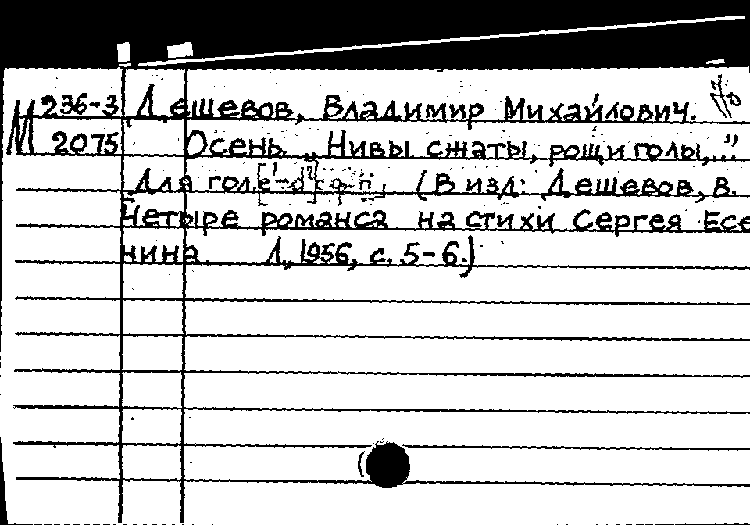 М 236-3 Дешевов, Владимир Михайлович.
2075 Осень. „Нивы сжаты, рощи голы,..."
Для гол. [e¹-d²] с ф-п. (В изд: Дешевов, В.
Четыре романса на стихи Сергея Есе
нина. Л., 1956, с. 5-6.)